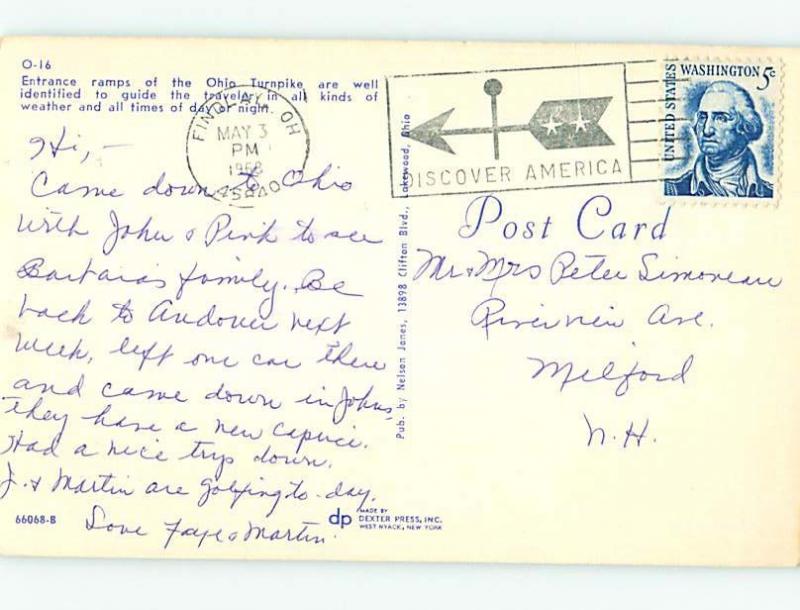 O-16
Entrance ramps of the Ohio Turnpike are well
identified to guide the traveler in all kinds of
weather and all times of day or night.
FINDLAY, OH
MAY 3
PM
1968
45840
DISCOVER AMERICA
UNITED STATES
WASHINGTON 5c
Post Card
Hi, -
Came down to Ohio
with John & Pink to see
Barbara's family. Be
back to Andover next
week, left one car there
and came down in Johns,
they have a new caprice.
Had a nice trip down.
J. & Martin are golfing to-day.
Love Faye & Martin
Mr & Mrs Peter Simoneau
Riverview Ave.
Milford
N.H.
Pub. by Nelson Jones, 13898 Clifton Blvd., Lakewood, Ohio
66068-B
dp
MADE BY
DEXTER PRESS, INC.
WEST NYACK, NEW YORK